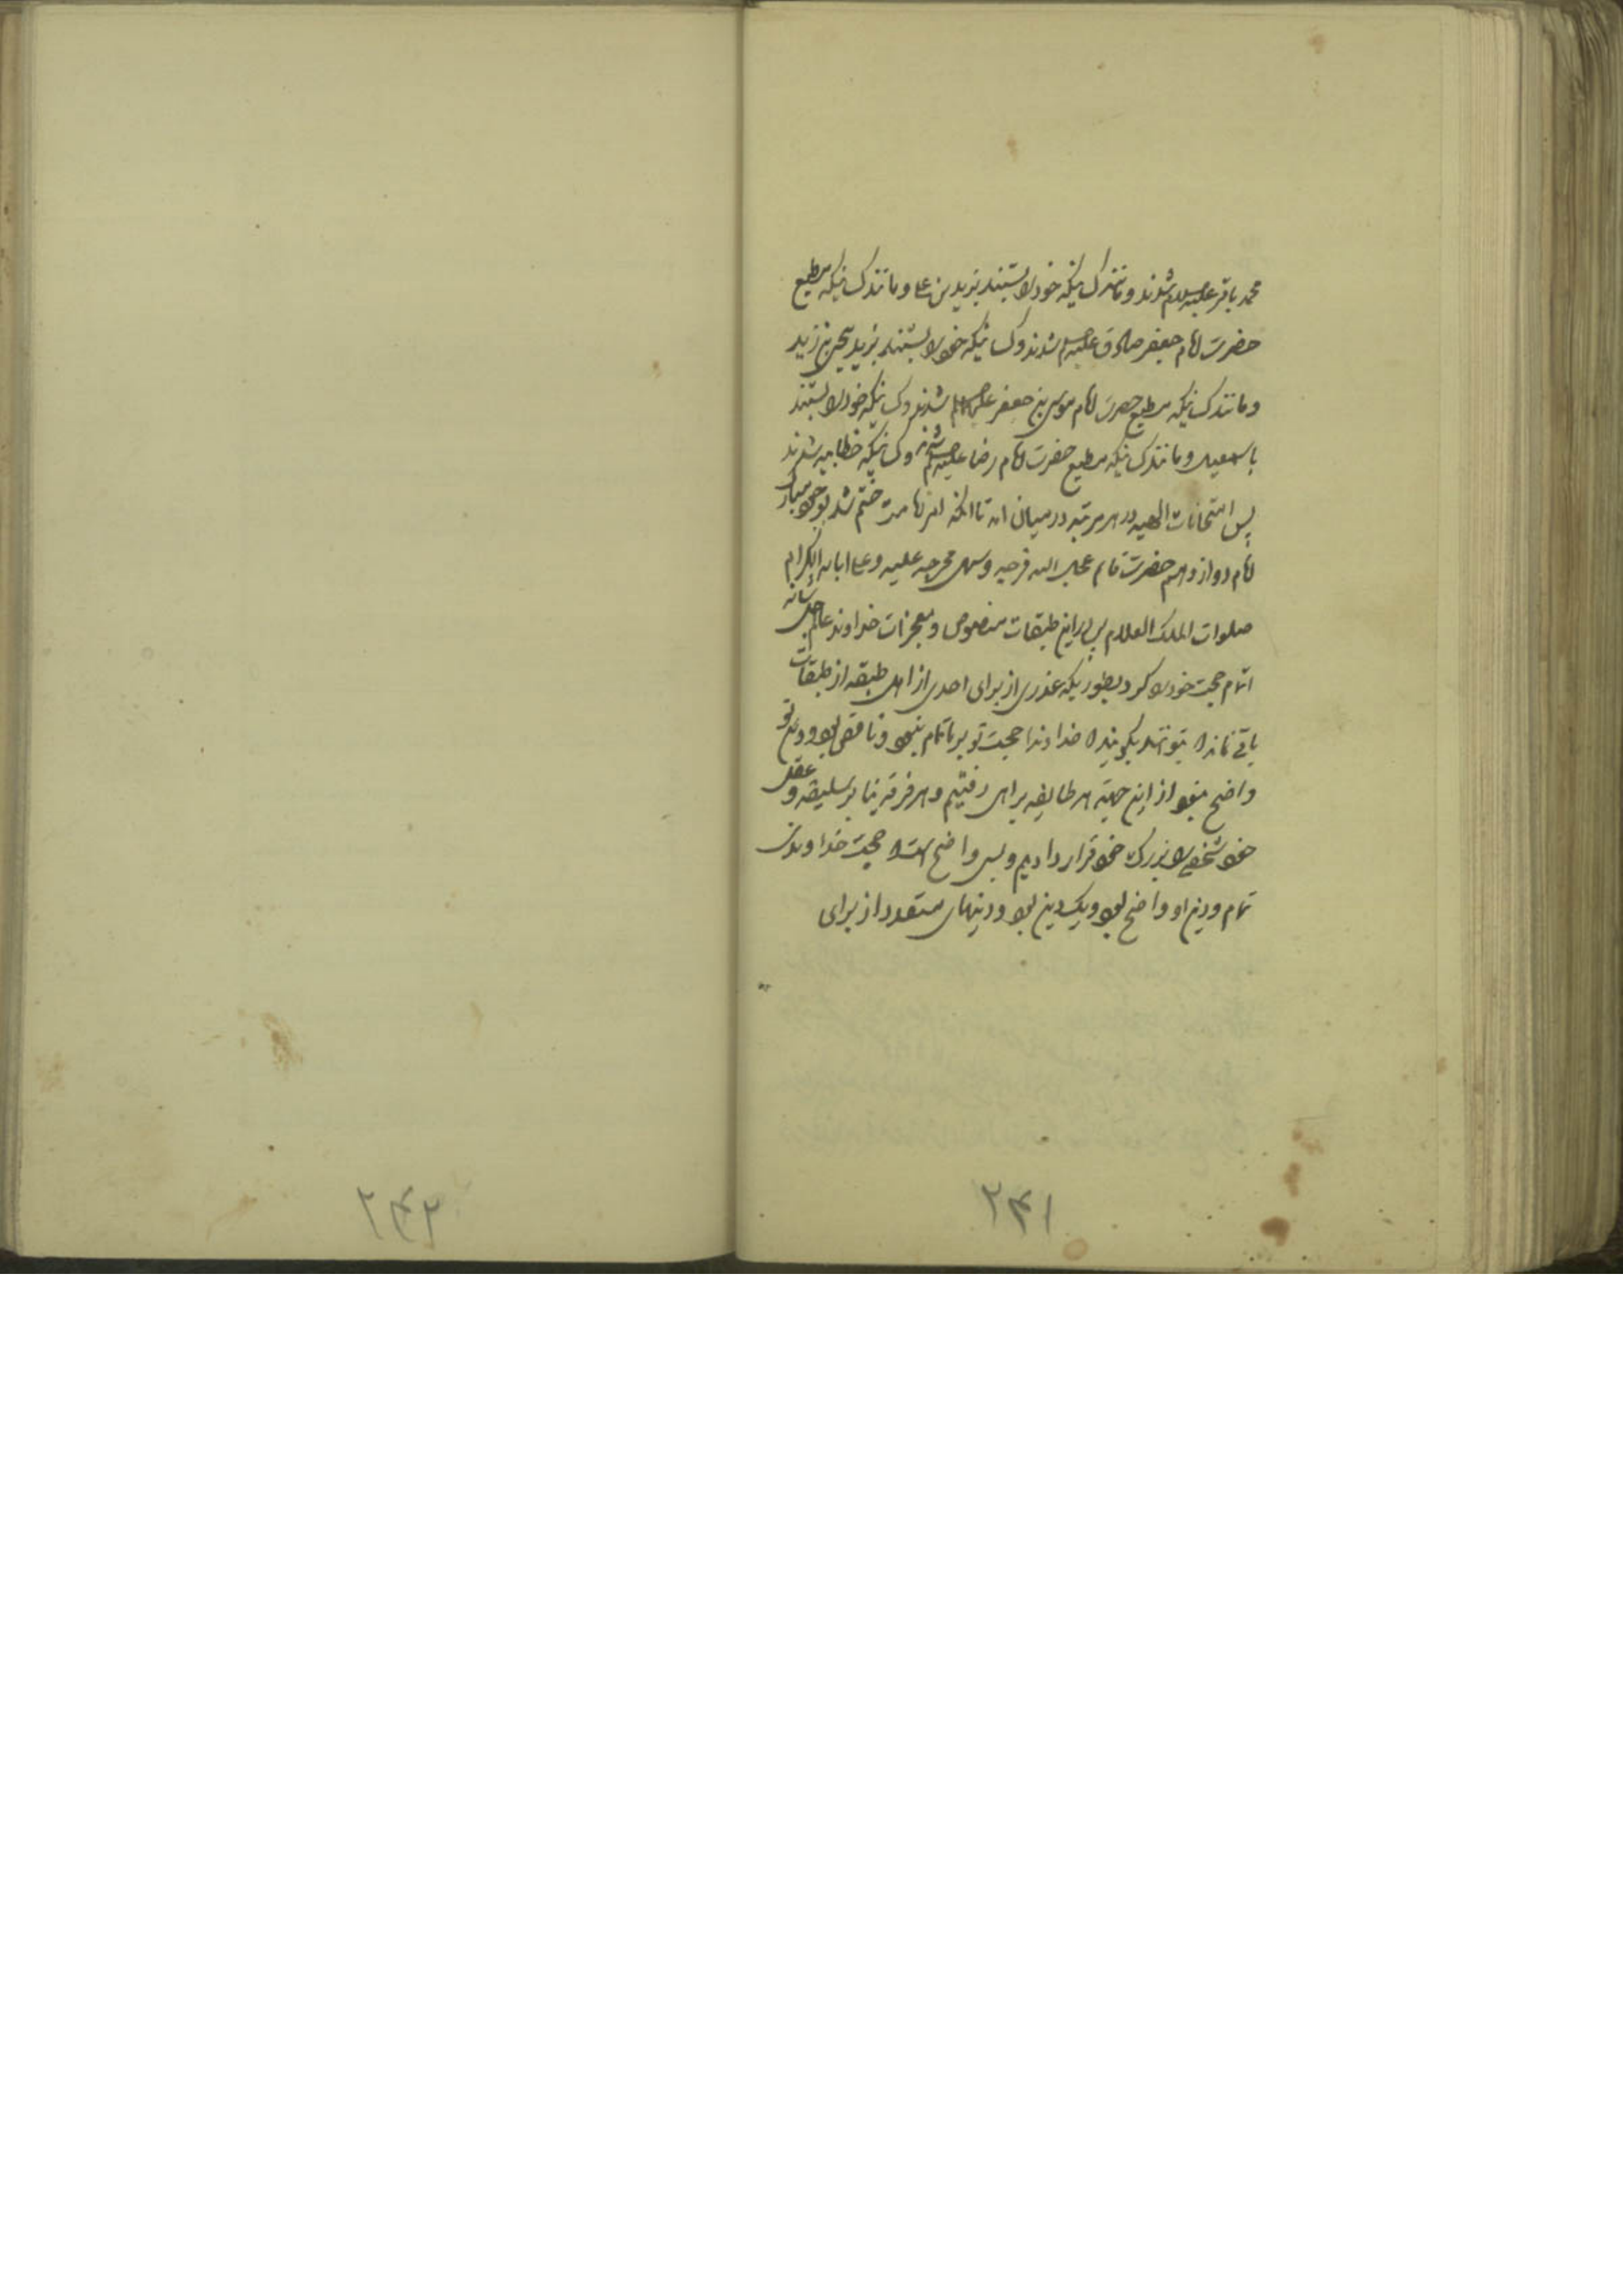 محمد باقر علیه السلام شدند و مانند کسانیکه خود را بستند بزید بن علی و مانند کسانیکه مطیع
حضرت امام جعفر صادق علیه السلام شدند و کسانیکه خود را بستند بزید یحیی بن زید
و مانند کسانیکه مطیع حضرت امام موسی بن جعفر علیهما السلام شدند و کسانیکه خود را بستند
باسمعیل و مانند کسانیکه مطیع حضرت امام رضا علیه السلام شدند و کسانیکه خطابیه شدند
پس امتحانات الهیه در هر مرتبه در میان آمد تا آنکه امر امامت ختم شد بوجود مبارک
امام دوازدهم حضرت قائم عجل الله فرجه و سهل مخرجه علیه و علی ابائه الکرام
صلوات الملک العلام پس در این طبقات منصوص و معجزات خداوند عالم جل شانه
اتمام حجت خود را کرد بطوریکه عذری از برای احدی از اهل طبقه از طبقات
باقی نماند که بتوانند بگویند که خداوندا حجت تو بر ما تمام نبود و ناقص بود و دین تو
واضح نبود از این جهة هر طایفه براهی رفتیم و هر فرقه بنا بر سلیقه و عقل
خود شخصی را بزرگ خود قرار دادیم و بس واضح است که حجت خداوندی
تمام و دین او واضح بود و یک دین بود و دینهای متعدد از برای
۲۴۱
۲۴۲